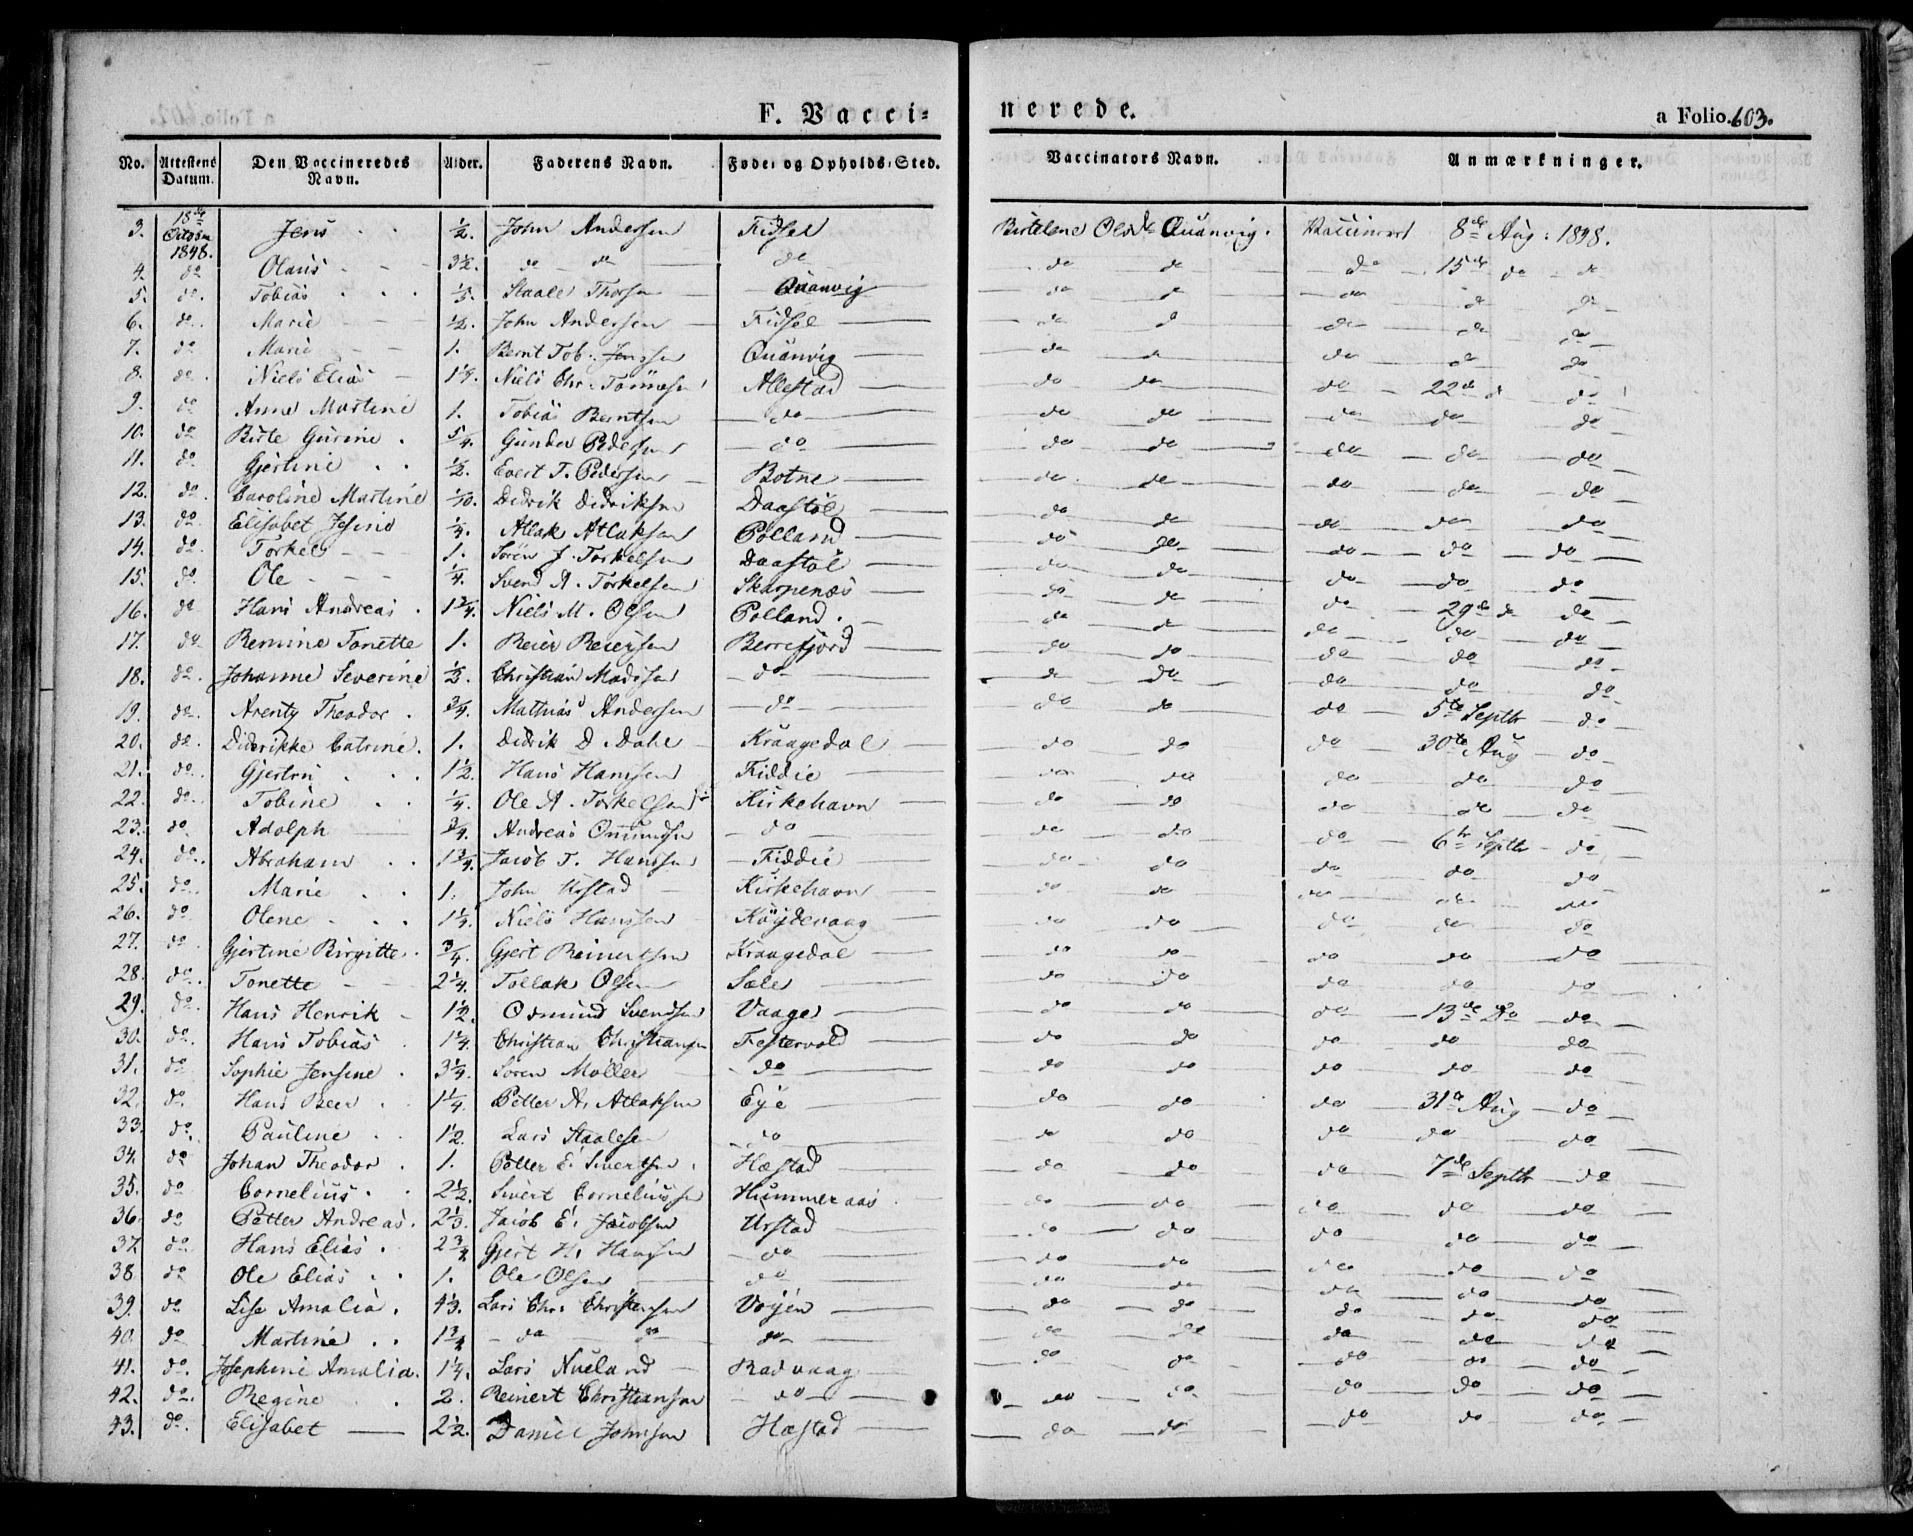 F. Vacci=
nerede.
a Folio. 603.
No. Attestens Datum. Den Vaccineredes Navn. Alder. Faderens Navn. Føde- og Opholds-Sted. Vaccinators Navn. Anmærkninger.
3. 18de Octobr 1848. Jens 1/2. John Andersen Fidsel Olsdr Quanvig. Vaccineret 8de Aug. 1848.
4. do Olaus 3 1/2. do do do do do do 15de do do
5. do. Tobias 1/3. Staale Thorsen Quanvig do do do do do
6. do. Marie 1/2. John Andersen Fidsel do do do do do
7. do Marie 1. Bernt Tob. Jensen Quanvig do do do do do
8. do. Niels Elias 1 1/4. Niels Chr. Tønnesen Allestad do do do 22de do do
9. do Anne Martine 1. Tobias Berntsen do do do do do do
10. do Birte Gurine. 5/4. Gunder Pedersen do do do do do do
11. do Gjertine 1/2. Evert T. Pedersen Botne do do do do do
12. do. Caroline Martine 1/10. Didrik Didriksen Daastøl do do do do do
13. do. Elisabet Jesine 1/4. Atlak Atlaksen Polland do do do do do
14. do. Torkel 1. Søren J. Torkelsen Daastøl do do do do do
15. do. Ole 1/4. Svend A. Torkelsen Skarpenæs do do do do do
16. do Hans Andreas. 1 3/4. Niels M. Olsen Polland. do do do 29de do do
17. do Bernine Tonette 1. Reier Reiersen Berrefjord do do do do do
18. do. Johanne Severine 1/3. Christian Madsen do do do do do do
19. do. Arent Theodor. 3/4. Mathias Andersen do do do do 5te Septbr do
20. do. Didrikke Catrine. 1. Didrik D. Dahl Kraagedal do do do 30te Aug do
21. do. Gjertru 1 1/2. Hans Hansen Fiddie do do do do do
22. do. Tobine 1/4. Ole A. Torkelsen Kirkehavn do do do do do
23. do. Adolph 3/4. Andreas Omundsen do do do do 6te Septbr do
24. do. Abraham 1 3/4. Jacob T. Hansen Fiddie do do do do do
25. do. Marie 1. John Urstad Kirkehavn do do do do do
26. do Olene 1 1/4. Niels Hansen Køydevaag do do do do do
27. do. Gjertine Birgitte. 3/4. Gjert Reinertsen Kraagedal do do do do do
28. do. Tonette 2 1/4. Tollak Olsen Sæle do do do do do
29. do. Hans Henrik 1 1/2. Osmund Svendsen Vaage do do do 13de do do
30. do. Hans Tobias 1 1/4. Christian Christiansen Festervold do do do do do
31. do Sophie Jensine. 3 1/4. Søren Møller do do do do do do
32. do. Hans Beer. 1 1/4. Petter A. Atlaksen Eye do do do 31te Aug do
33. do. Pauline 1 1/2. Lars Staalesen do do do do do do
34. do Johan Theodor. 1. Petter E. Sivertsen. Hæstad do do do 7de Septbr do
35. do Cornelius. 2 1/2. Sivert Corneliussen Hummeraas do do do do do
36. do Petter Andreas. 2 1/3. Jacob E. Jacobsen Urstad do do do do do
37. do Hans Elias. 2 3/4 Gjert H. Hansen do do do do do do
38. do Ole Elias 1. Ole Olsen do do do do do do
39. do Lise Amalia. 4 1/3. Lars Chr. Christensen Vøyen do do do do do
40. do Martine 1 3/4 do do do do do do do do
41. do. Josephine Amalia. 1 1/4. Lars Nueland Radvaag do do do do do
42. do. Regine 2. Reinert Christiansen do do do do do do
43. do. Elisabet 2 1/2. Daniel Johnsen Hæstad do do do do do